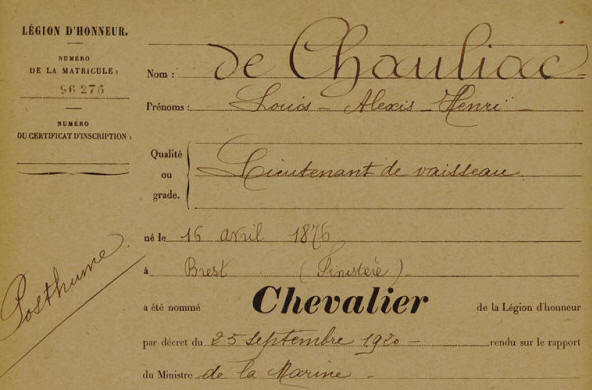 LÉGION D'HONNEUR.
NUMÉRO
DE LA MATRICULE :
96 276
NUMÉRO
DU CERTIFICAT D'INSCRIPTION :
Posthume.
Nom : de Chauliac
Prénoms : Louis - Alexis - Henri -
Qualité
ou
grade.
Lieutenant de vaisseau.
né le 16 avril 1876
à Brest (Finistère)
a été nommé Chevalier de la Légion d'honneur
par décret du 25 septembre 1920 - rendu sur le rapport
du Ministre de la Marine -